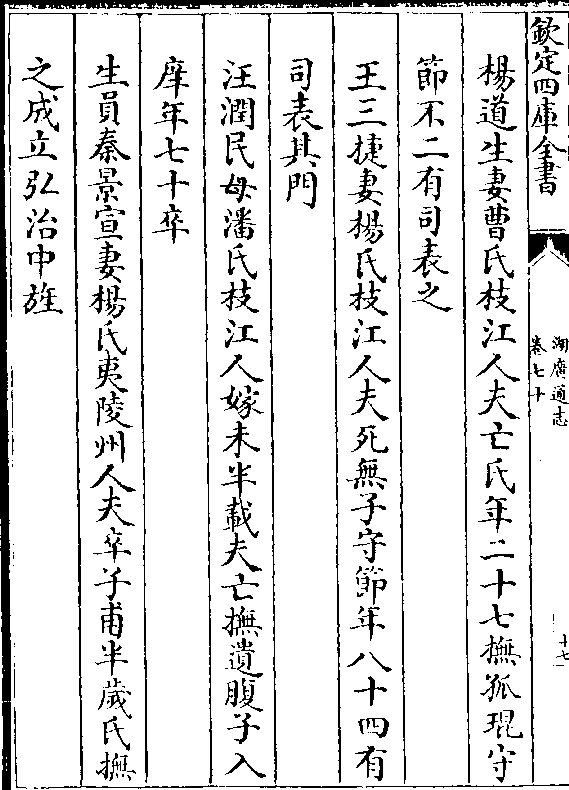 欽定四庫全書
湖廣通志
卷七十
十七
楊道生妻曹氏枝江人夫亡氏年二十七撫孤琨守
節不二有司表之
王三捷妻楊氏枝江人夫死無子守節年八十四有
司表其門
汪潤民母潘氏枝江人嫁未半載夫亡撫遺腹子入
庠年七十卒
生員秦景宣妻楊氏夷陵州人夫卒子甫半歲氏撫
之成立弘治中旌